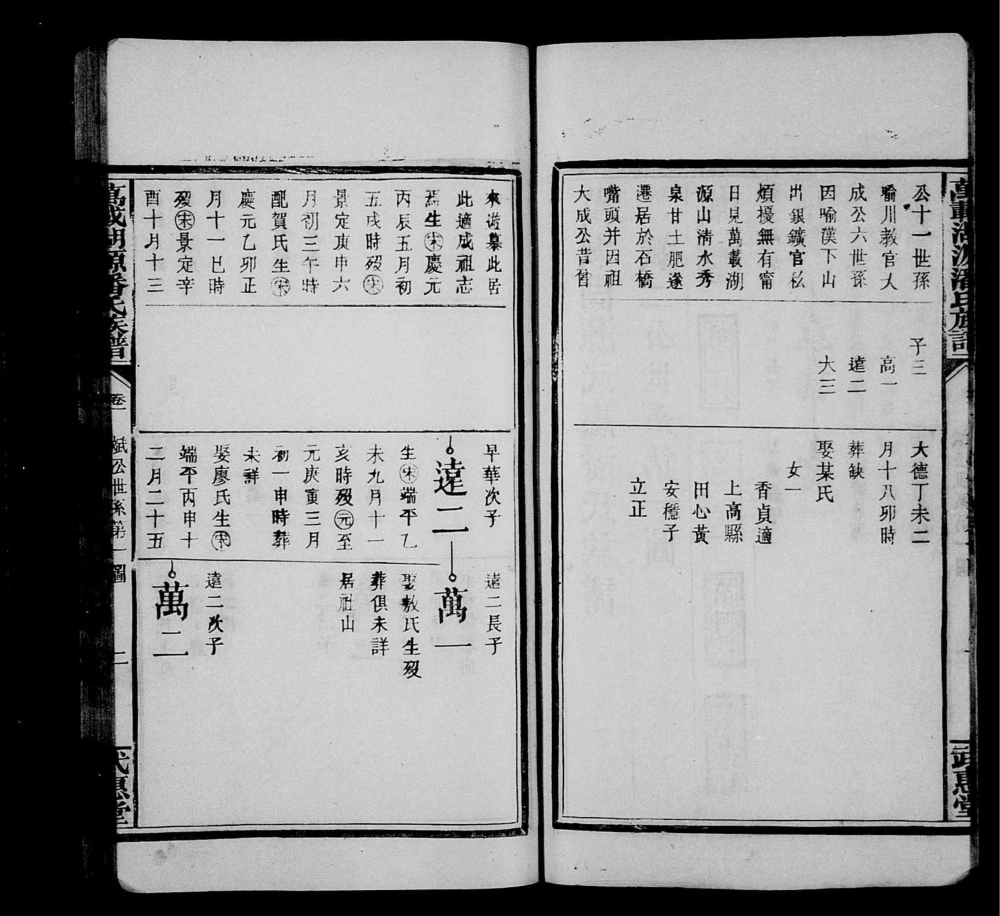 公十一世孫
喻川教官大
成公六世孫
因喻漢下山
出銀鑛官私
煩擾無有甯
日見萬載湖
源山清水秀
泉甘土肥遂
遷居於石橋
嘴頭并因祖
大成公昔曾
子三
高一
遠二
大三
大德丁未二
月十八卯時
葬缺
娶某氏
女一
香貞適
上高縣
田心黃
安穩子
立正
來遊慕此居
此適成祖志
焉生宋慶元
丙辰五月初
五戌時歿宋
景定庚申六
月初三午時
配賀氏生宋
慶元乙卯正
月十一巳時
歿宋景定辛
酉十月十三
早華次子
遠二
生宋端平乙
未九月十一
亥時歿元至
元庚寅三月
初一申時葬
未詳
娶廖氏生宋
端平丙申十
二月二十五
遠二長子
萬一
娶敖氏生歿
葬俱未詳
居祖山
遠二次子
萬二
萬載湖源潘氏族譜
卷一
斌公世系第一圖
二
武惠堂